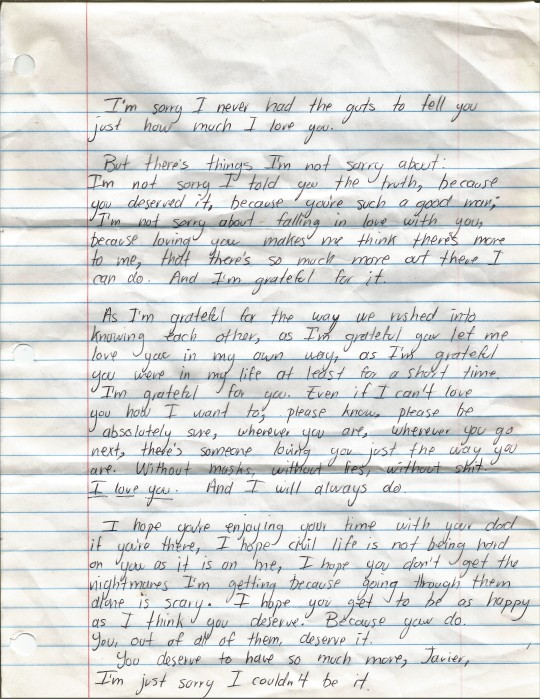 I'm sorry I never had the guts to tell you
just how much I love you.
But there's things I'm not sorry about:
I'm not sorry I told you the truth, because
you deserved it, because you're such a good man;
I'm not sorry about falling in love with you,
because loving you makes me think there's more
to me, that there's so much more out there I
can do. And I'm grateful for it.
As I'm grateful for the way we rushed into
knowing each other, as I'm grateful you let me
love you in my own way, as I'm grateful
you were in my life at least for a short time.
I'm grateful for you. Even if I can't love
you how I want to, please know, please be
absolutely sure, wherever you are, wherever you go
next, there's someone loving you just the way you
are. Without masks, without lies, without shit.
I love you. And I will always do.
I hope you're enjoying your time with your dad
if you're there, I hope civil life is not being hard
on you as it is on me, I hope you don't get the
nightmares I'm getting because going through them
alone is scary. I hope you get to be as happy
as I think you deserve. Because you do.
You, out of all of them, deserve it.
You deserve to have so much more, Javier,
I'm just sorry I couldn't be it.